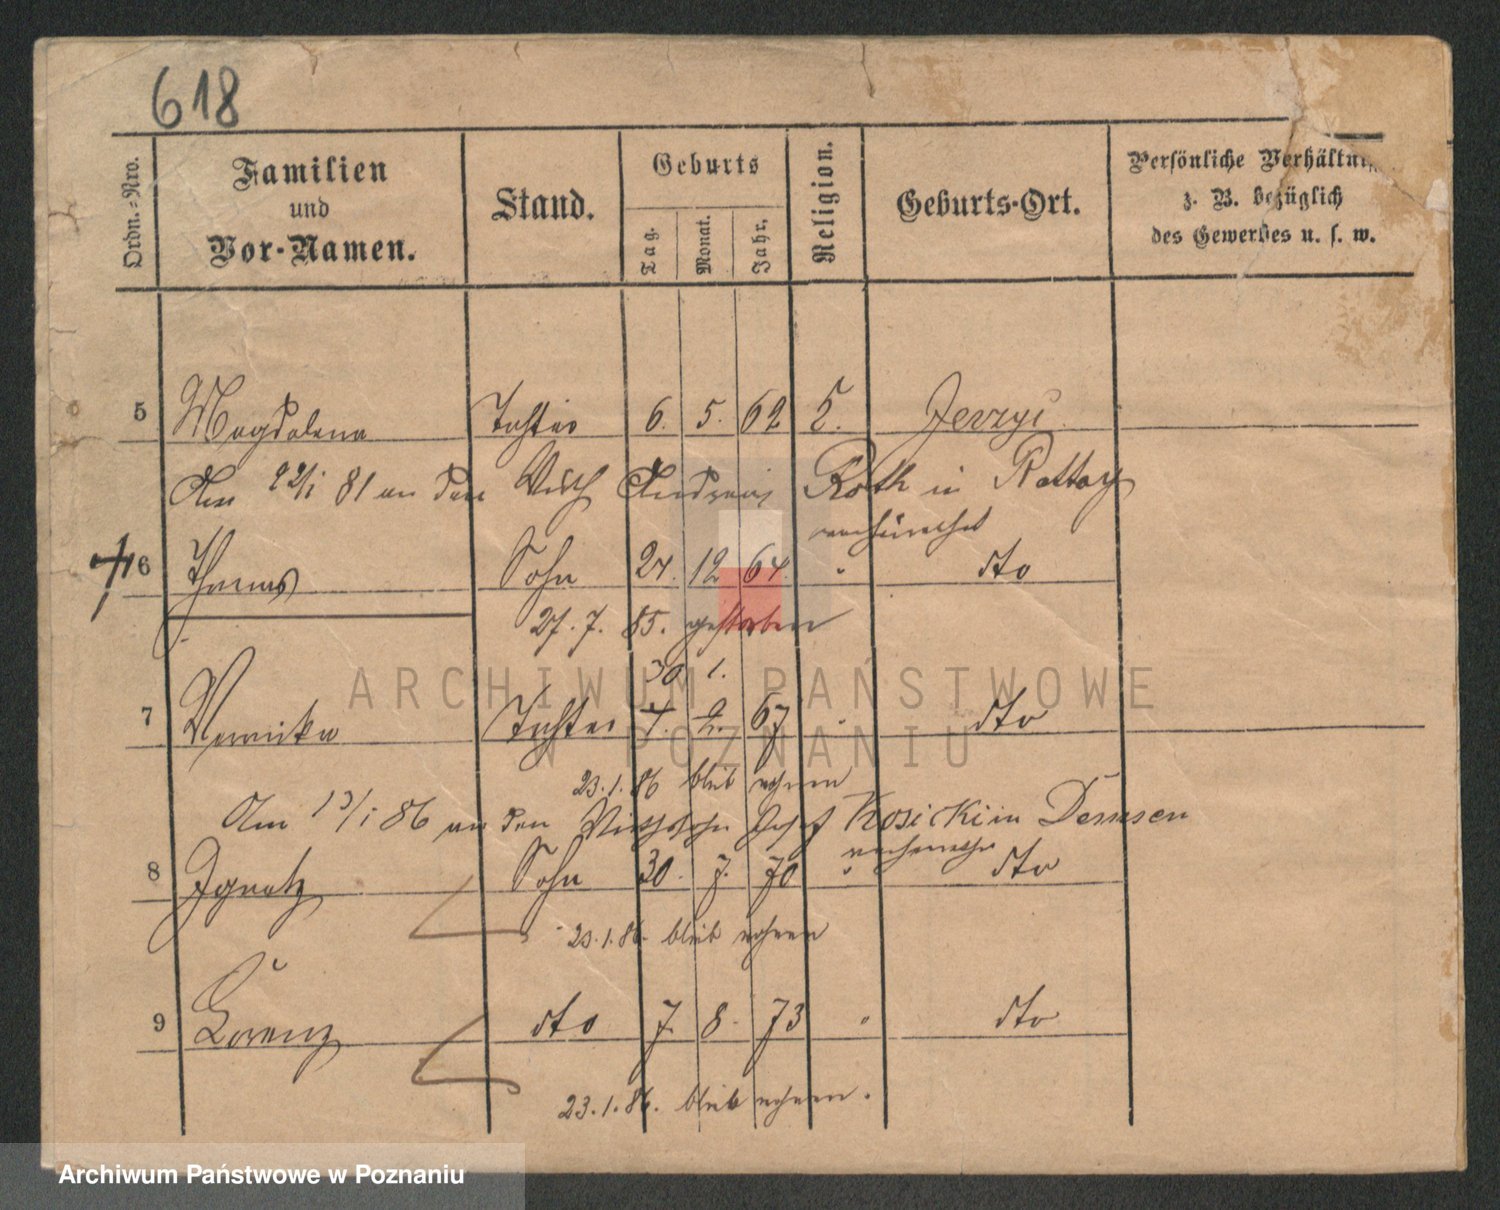 618
Ordn.=Nro.
Familien
und
Vor-Namen.
Stand.
Geburts
Tag.
Monat.
Jahr.
Religion.
Geburts-Ort.
Persönliche Verhältni
z. B. bezüglich
des Gewerbes u. s. w.
5 Magdalena Tochter 6. 5. 62 Jerzyi
Am 22/1 81 an den Wirth Andreas Roth in Rattay
6 Thomas Sohn 27. 12 64 " dto
27. 7. 85. gestorben
30 1.
7 Veronika Tochter 7. 2. 67 " dto
23.1.86
Am 13/1 86 an den Josef Kosicki in Demsen
8 Ignatz Sohn 30. 7. 70 " dto
23.1.86.
9 Lorenz dto 7. 8. 73 " dto
23.1.86.
ARCHIWUM PAŃSTWOWE
W POZNANIU
Archiwum Państwowe w Poznaniu